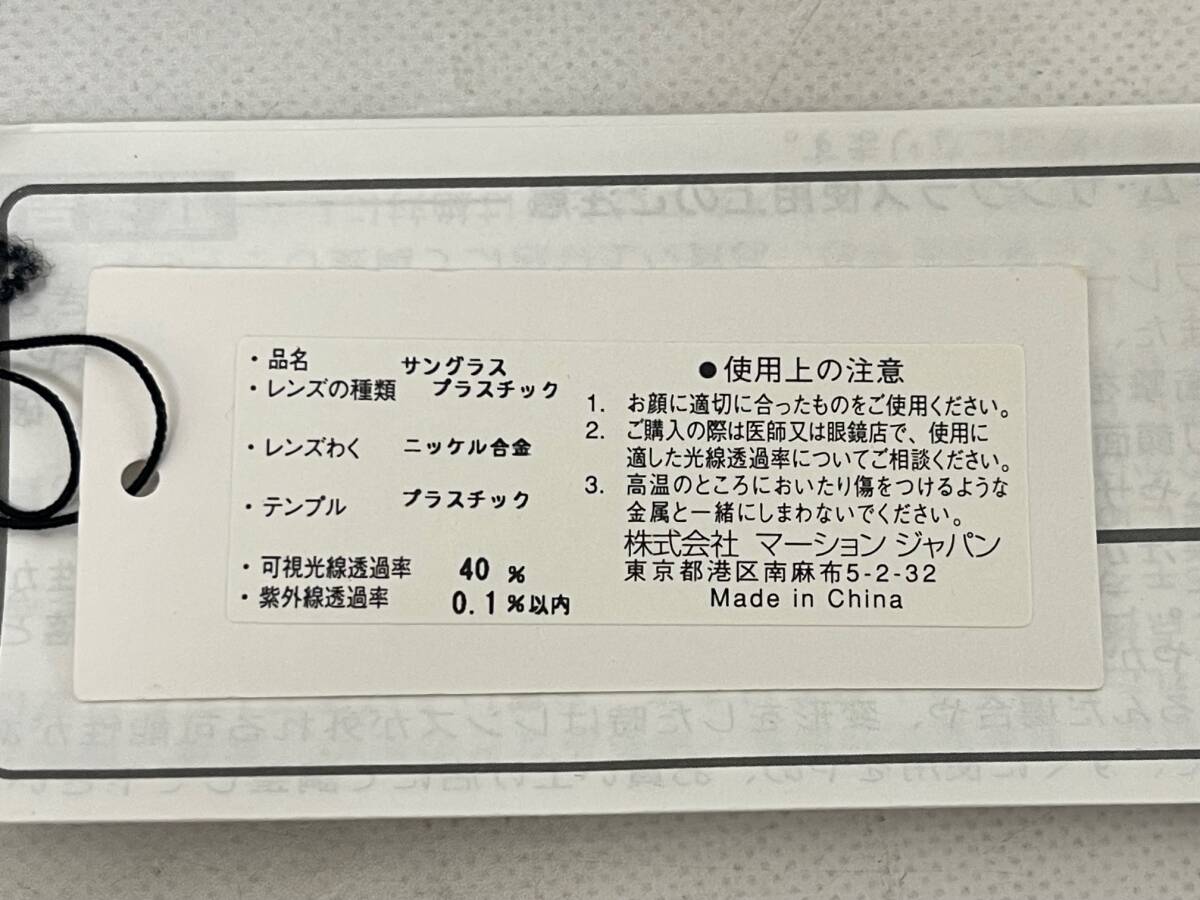 ・品名 サングラス
・レンズの種類 プラスチック
・レンズわく ニッケル合金
・テンプル プラスチック
・可視光線透過率 40 %
・紫外線透過率 0.1%以内
●使用上の注意
1. お顔に適切に合ったものをご使用ください。
2. ご購入の際は医師又は眼鏡店で、使用に
適した光線透過率についてご相談ください。
3. 高温のところにおいたり傷をつけるような
金属と一緒にしまわないでください。
株式会社 マーション ジャパン
東京都港区南麻布5-2-32
Made in China